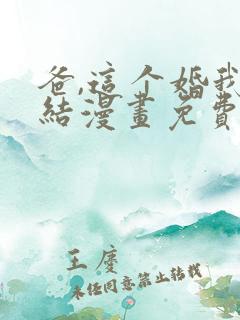 爸,這个婚我
結漫畫免費
王慶
未任同意禁止转载